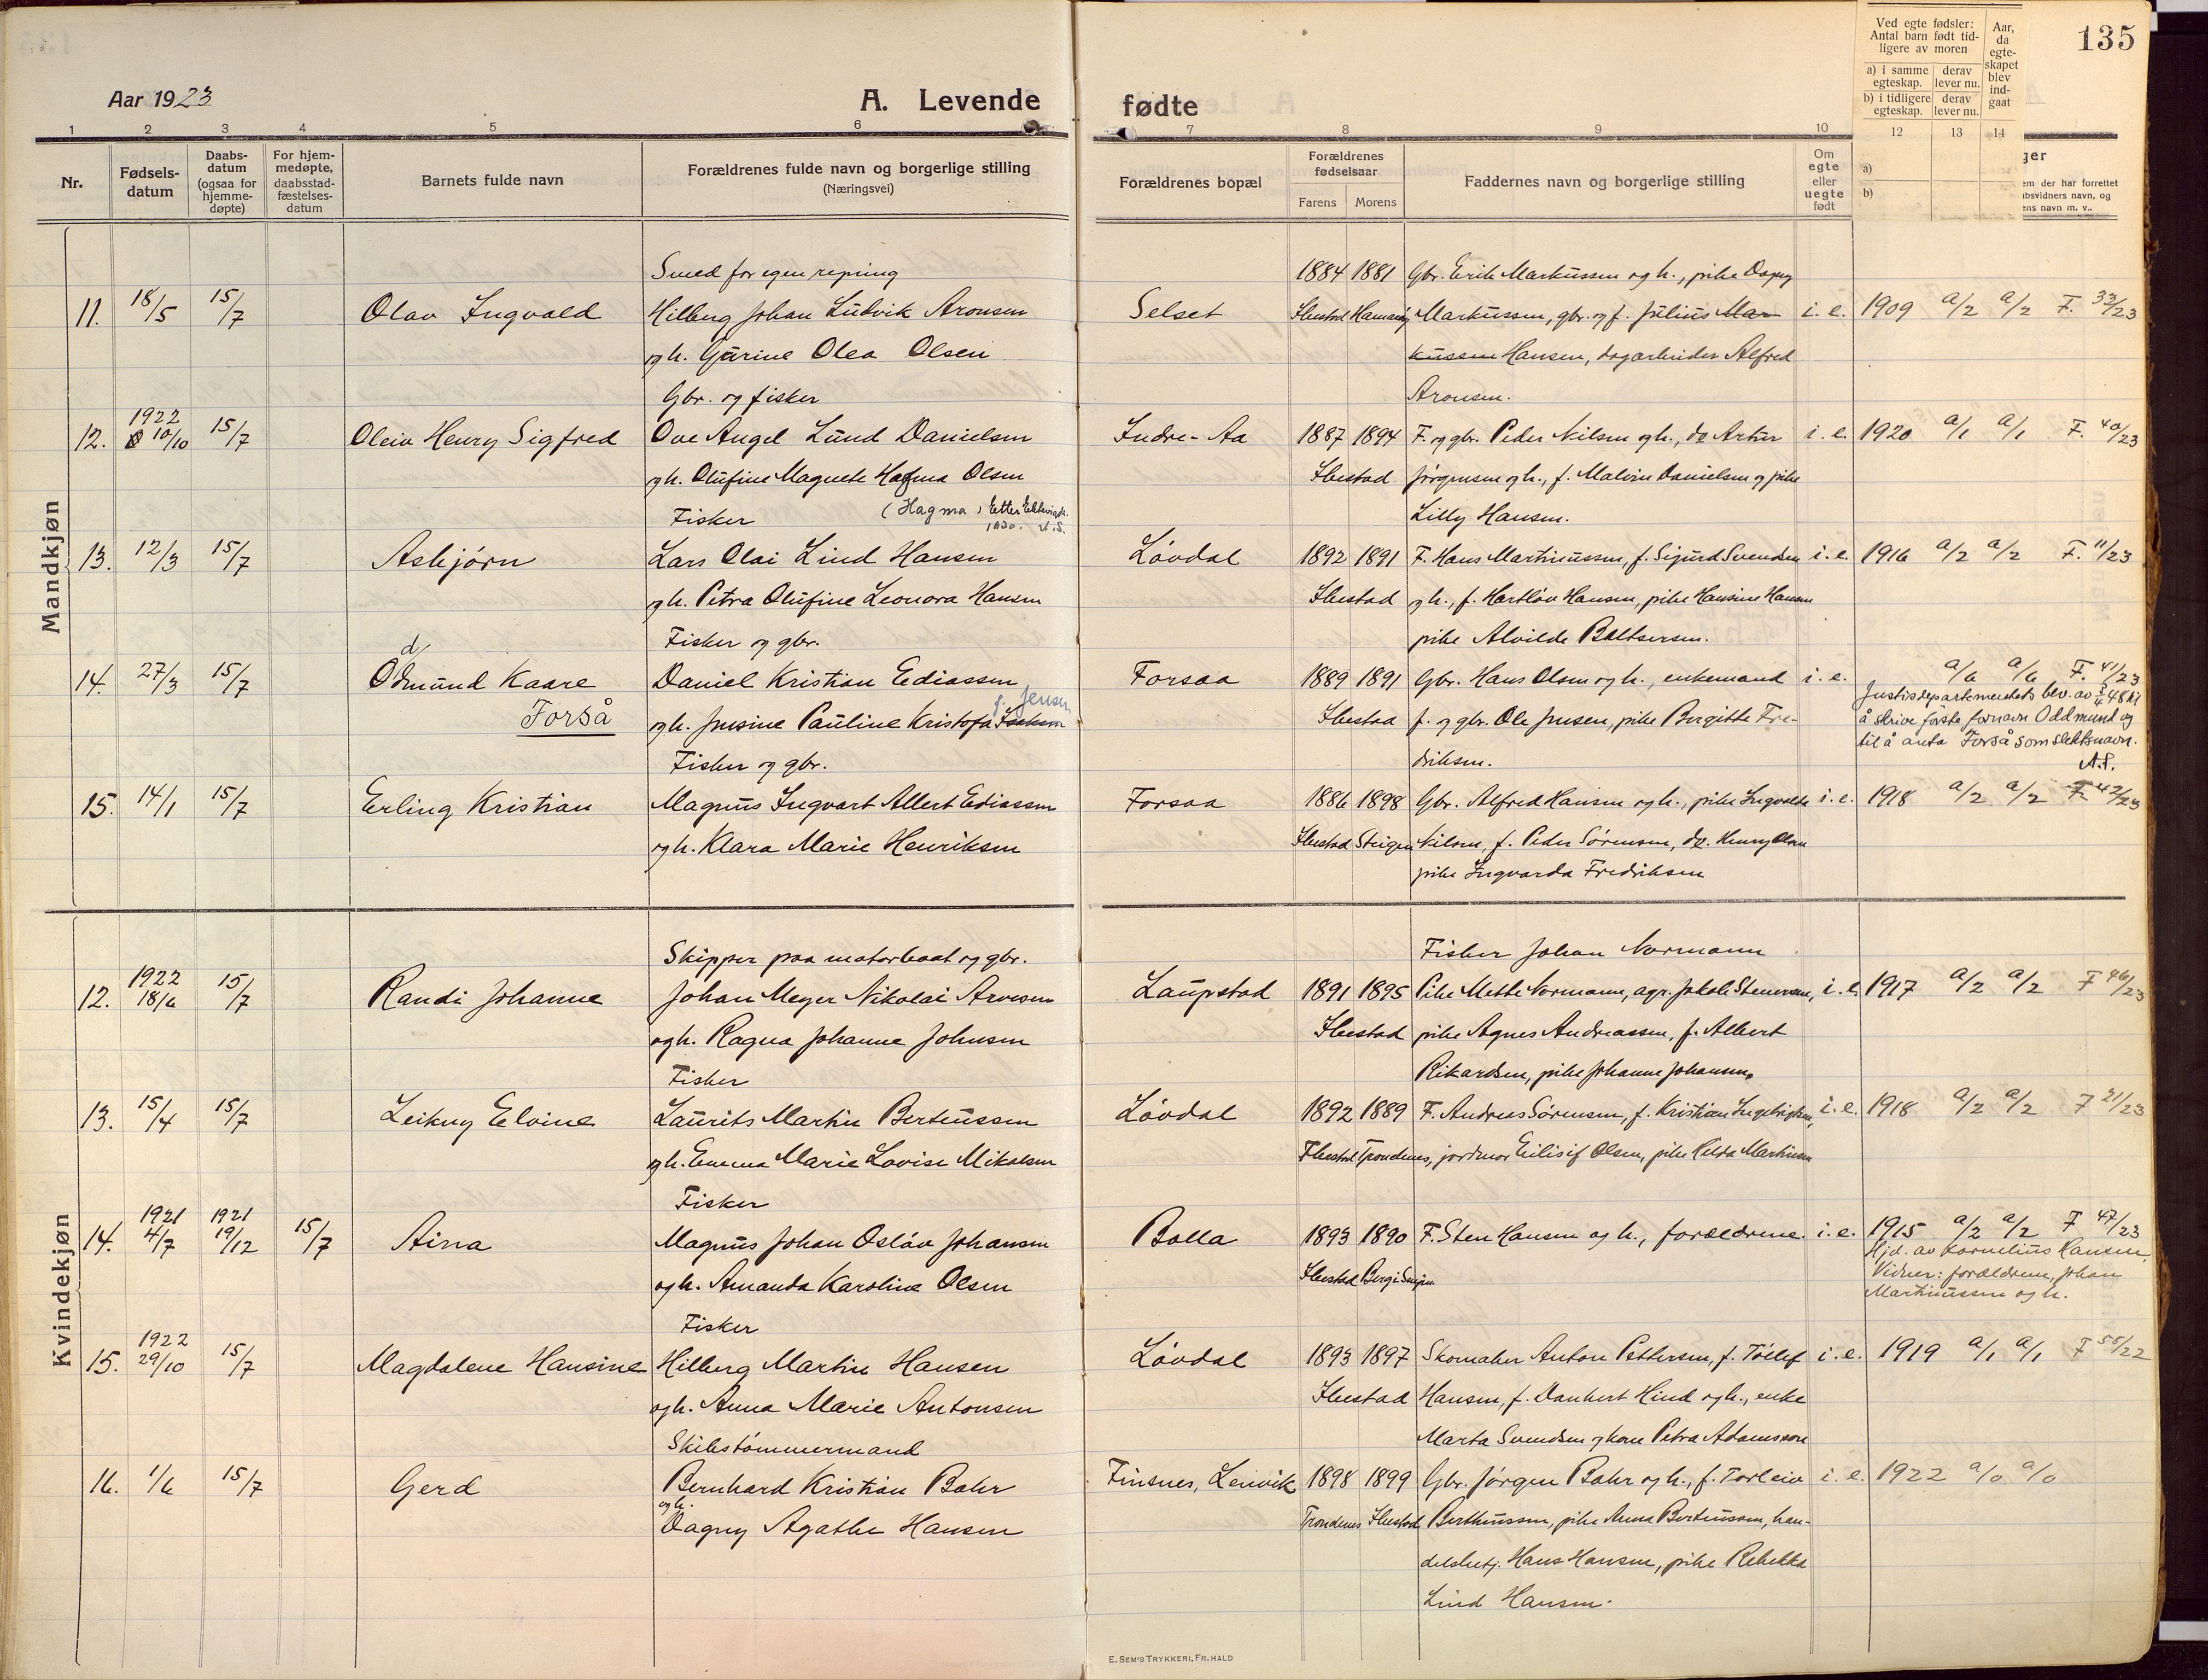 135
Aar 1923
A. Levende
fødte
Ved egte fødsler:
Antal barn født tid-
ligere av moren
a) i samme egteskap. derav lever nu.
b) i tidligere egteskap. derav lever nu.
Aar, da egte-skapet blev ind-gaat
1 2 3 4 5 6 7 8 9 10 12 13 14
Nr.
Fødsels-
datum
Daabs-
datum
(ogsaa for
hjemme-
døpte)
For hjem-
medøpte,
daabsstad-
fæstelses-
datum
Barnets fulde navn
Forældrenes fulde navn og borgerlige stilling
(Næringsvei)
Forældrenes bopæl
Forældrenes
fødselsaar
Farens Morens
Faddernes navn og borgerlige stilling
Om
egte
eller
uegte
født
a)
b)
ger
em der har forrettet
bsvidners navn, og
ens navn m. v..
Mandkjøn
Smed for egen regning 1884 1881 Gbr. Erik Markussen og h., pike Dagny
11. 18/5 15/7 Olav Ingvald Hilberg Johan Ludvik Aronsen Selset Ibestad Markussen, gbr. og f. Julius Mar- i. e. 1909 a/2 a/2 F. 33/23
og h. Gurine Olea Olsen kussen Hansen, dagarbeider Alfred
Gbr. og fisker Aronsen.
1922
12. 10/10 15/7 Oleiv Henry Sigfred Ove Angel Lund Danielsen Indre-Aa 1887 1894 F. og gbr. Peder Nilsen og h., do Artur i. e. 1920 a/1 a/1 F. 40/23
og h. Olufine Magnete Hagma Olsen Ibestad Jørgensen og h., f. Malvin Danielsen og pike
Fisker (Hagma) Lilly Hansen.
13. 12/3 15/7 Asbjørn Lars Olai Lind Hansen Løvdal 1892 1891 F. Hans Martinussen, f. Sigurd Svendsen i. e. 1916 a/2 a/2 F. 11/23
og h. Petra Olufine Leonora Hansen Ibestad og h., f. Hartløv Hansen, pike Hansine Hansen
Fisker og gbr. pike Alvilde Baltsersen.
d
14. 27/3 15/7 Odmund Kaare Daniel Kristian Ediassen Forsaa 1889 1891 Gbr. Hans Olsen og h., enkemand i. e. a/6 a/6 F. 41/23
f. Jensen
Forså og h. Jensine Pauline Kristofa Isaksen Ibestad f. og gbr. Ole Jensen, pike Bergitte Fre-
Justisdepartementets bev. av 5/4 48 til
å skrive første fornavn Oddmund og
til å anta Forså som slektsnavn.
A.S.
Fisker og gbr. driksen.
15. 14/1 15/7 Erling Kristian Magnus Ingvart Albert Ediassen Forsaa 1886 1898 Gbr. Alfred Hansen og h., pike Ingvalda i. e. 1918 a/2 a/2 F. 42/23
og h. Klara Marie Henriksen Ibestad Steigen Nilsen, f. Peder Sørensen, do. Henry Olsen
pike Ingvarda Fredriksen
Kvindekjøn
Skipper paa motorbaat og gbr. Fisker Johan Normann
1922
12. 18/6 15/7 Randi Johanne Johan Meyer Nikolai Arnesen Laupstad 1891 1895 Pike Mette Normann, agr. Jakob Stenersen, i. e. 1917 a/2 a/2 F 46/23
og h. Ragna Johanne Johnsen Ibestad pike Agnes Andreassen, f. Albert
Fisker Rikardsen, pike Johanne Johansen.
13. 15/4 15/7 Leikny Elvine Laurits Martin Berteussen Løvdal 1892 1889 F. Andreas Sørensen, f. Kristian Ingebrigtsen, i. e. 1918 a/2 a/2 F 21/23
og h. Emma Marie Lovise Mikalsen Ibestad Trondenes, jordmor Eilisif Olsen, pike Hilda Martinsen
Fisker
1921 1921
14. 4/7 19/12 15/7 Aina Magnus Johan Osláv Johansen Bolla 1893 1890 F. Sten Hansen og h., forældrene. i. e. 1915 a/2 a/2 F 47/23
og h. Amanda Karoline Olsen Ibestad Berg i Senjen
Hjd. av Kornelius Hansen.
Vidner: forældrene, Johan
Martinussen og h.
Fisker
1922
15. 29/10 15/7 Magdalene Hansine Hilberg Martin Hansen Løvdal 1893 1897 Skomaker Anton Pettersen, f. Tollef i. e. 1919 a/1 a/1 F 58/22
og h. Anna Marie Antonsen Ibestad Hansen, f. Dankert Hind og h., enke
Skibstømmermand Marta Svendsen og kone Petra Adamsson
16. 1/6 15/7 Gerd Bernhard Kristian Bahr Finsnes, Lenvik 1898 1899 Gbr. Jørgen Bahr og h., f. Torleiv i. e. 1922 a/0 a/0
og h.
Dagny Agathe Hansen Trondenes Ibestad Bertheussen, pike Anna Berteussen, han-
delsbetj. Hans Hansen, pike Rebekka
Lind Hansen.
E. SEM'S TRYKKERI, FR.HALD